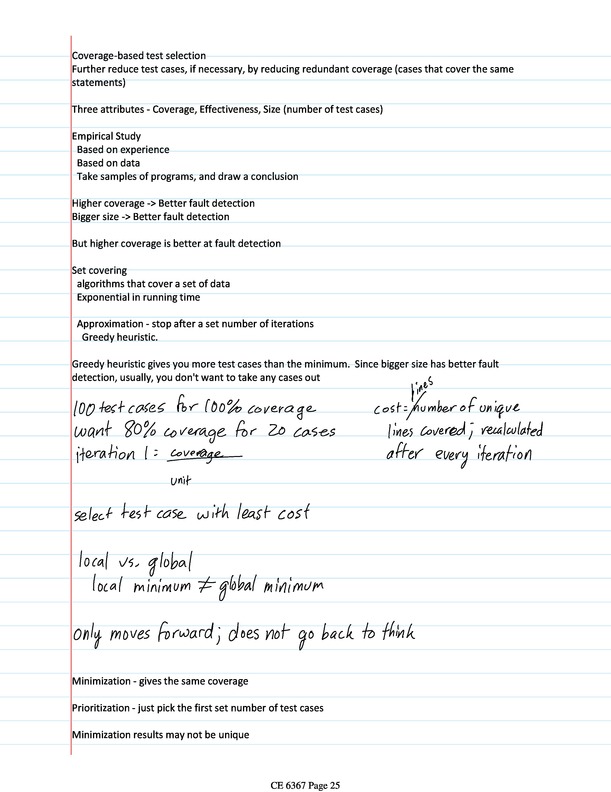 Coverage-based test selection
Further reduce test cases, if necessary, by reducing redundant coverage (cases that cover the same
statements)
Three attributes - Coverage, Effectiveness, Size (number of test cases)
Empirical Study
Based on experience
Based on data
Take samples of programs, and draw a conclusion
Higher coverage -> Better fault detection
Bigger size -> Better fault detection
But higher coverage is better at fault detection
Set covering
algorithms that cover a set of data
Exponential in running time
Approximation - stop after a set number of iterations
Greedy heuristic.
Greedy heuristic gives you more test cases than the minimum.  Since bigger size has better fault
detection, usually, you don't want to take any cases out
100 test cases for 100% coverage
want 80% coverage for 20 cases
iteration 1 = coverage
unit
lines
cost = / number of unique
lines covered; recalculated
after every iteration
select test case with least cost
local vs. global
local minimum ≠ global minimum
only moves forward; does not go back to think
Minimization - gives the same coverage
Prioritization - just pick the first set number of test cases
Minimization results may not be unique
CE 6367 Page 25